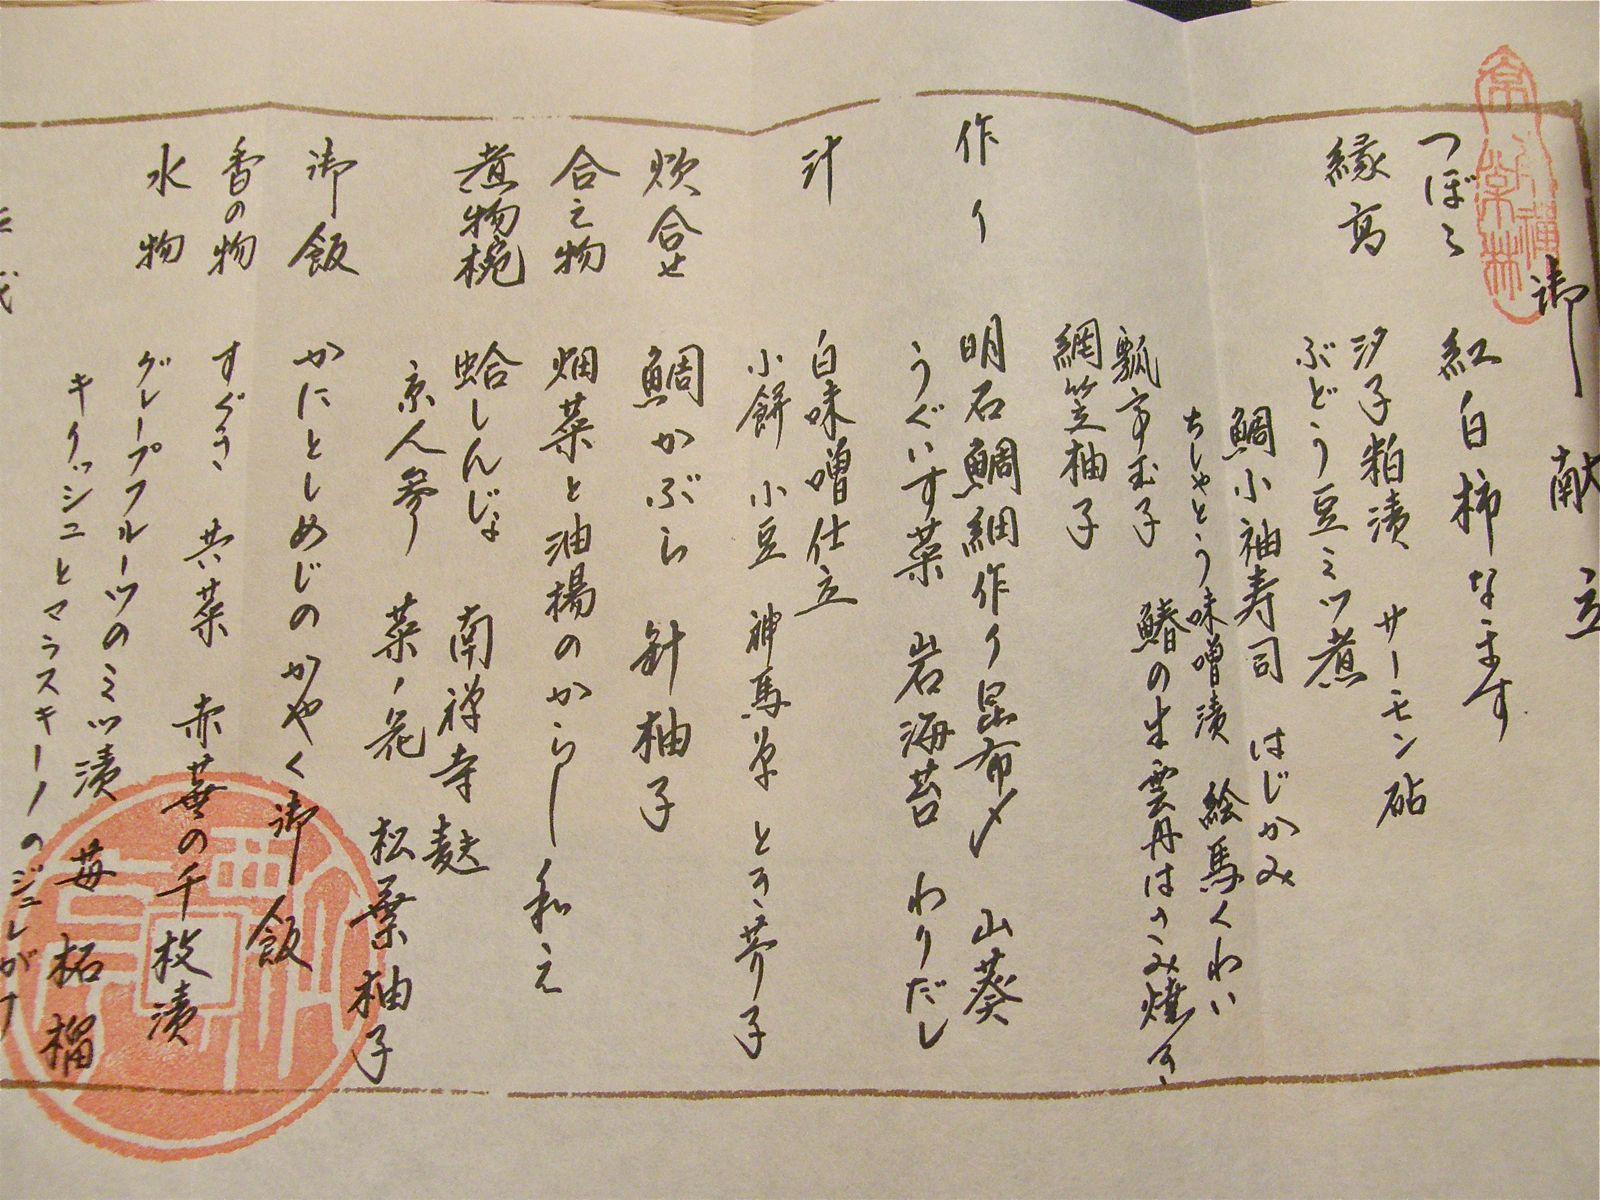 御献立
つぼつぼ 紅白柿なます
縁高 汐子粕漬 サーモン砧
ぶどう豆ミツ煮
鯛小袖寿司 はじかみ
ちしゃとう味噌漬 絵馬くわい
瓢市玉子 鰆の生雲丹はさみ焼き
網笠柚子
作り 明石鯛細作り昆布〆 山葵
うぐいす菜 岩海苔 わりだし
汁 白味噌仕立
小餅 小豆 神馬草 とき芥子
炊合せ 鯛かぶら 針柚子
合之物 畑菜と油揚のからし和え
煮物椀 蛤しんじょ 南禅寺麩
京人参 菜ノ花 松葉柚子
御飯 かにとしめじのかやく御飯
香の物 すぐき 芥菜 赤蕪の千枚漬
水物 グレープフルーツのミツ漬 苺 柘榴
キルッシュとマラスキーノのジュレがけ